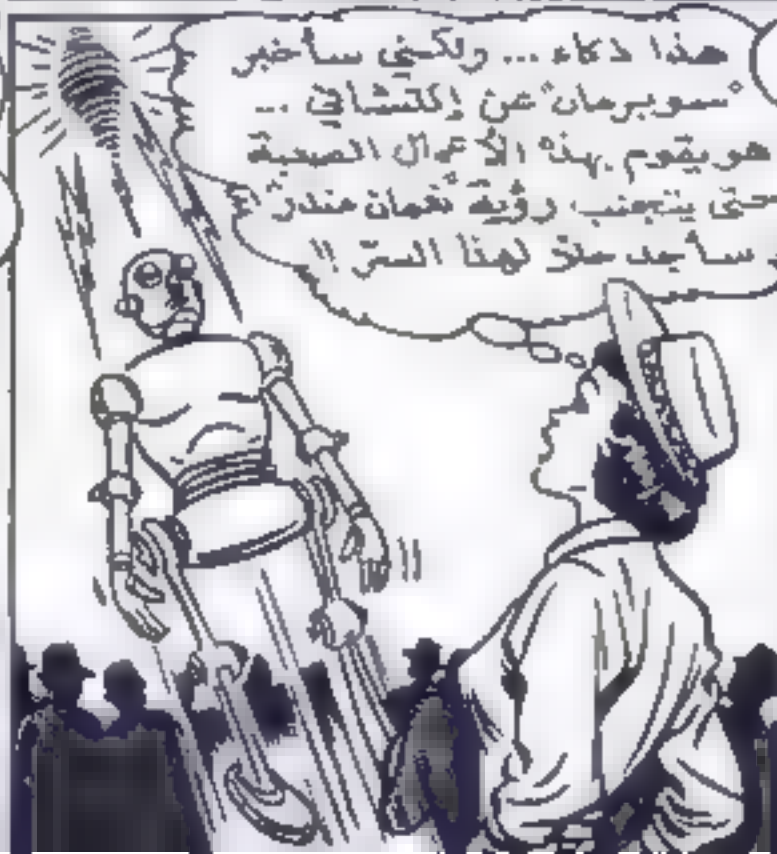 هذا ذكاء ... ولكني سأخبر
"سوبرمان" عن إكتشافي ...
هو يقوم بهذه الأعمال الصعبة
حتى يتجنب رؤية "نعمان
سأجد حلاً لهذا السرّ !!